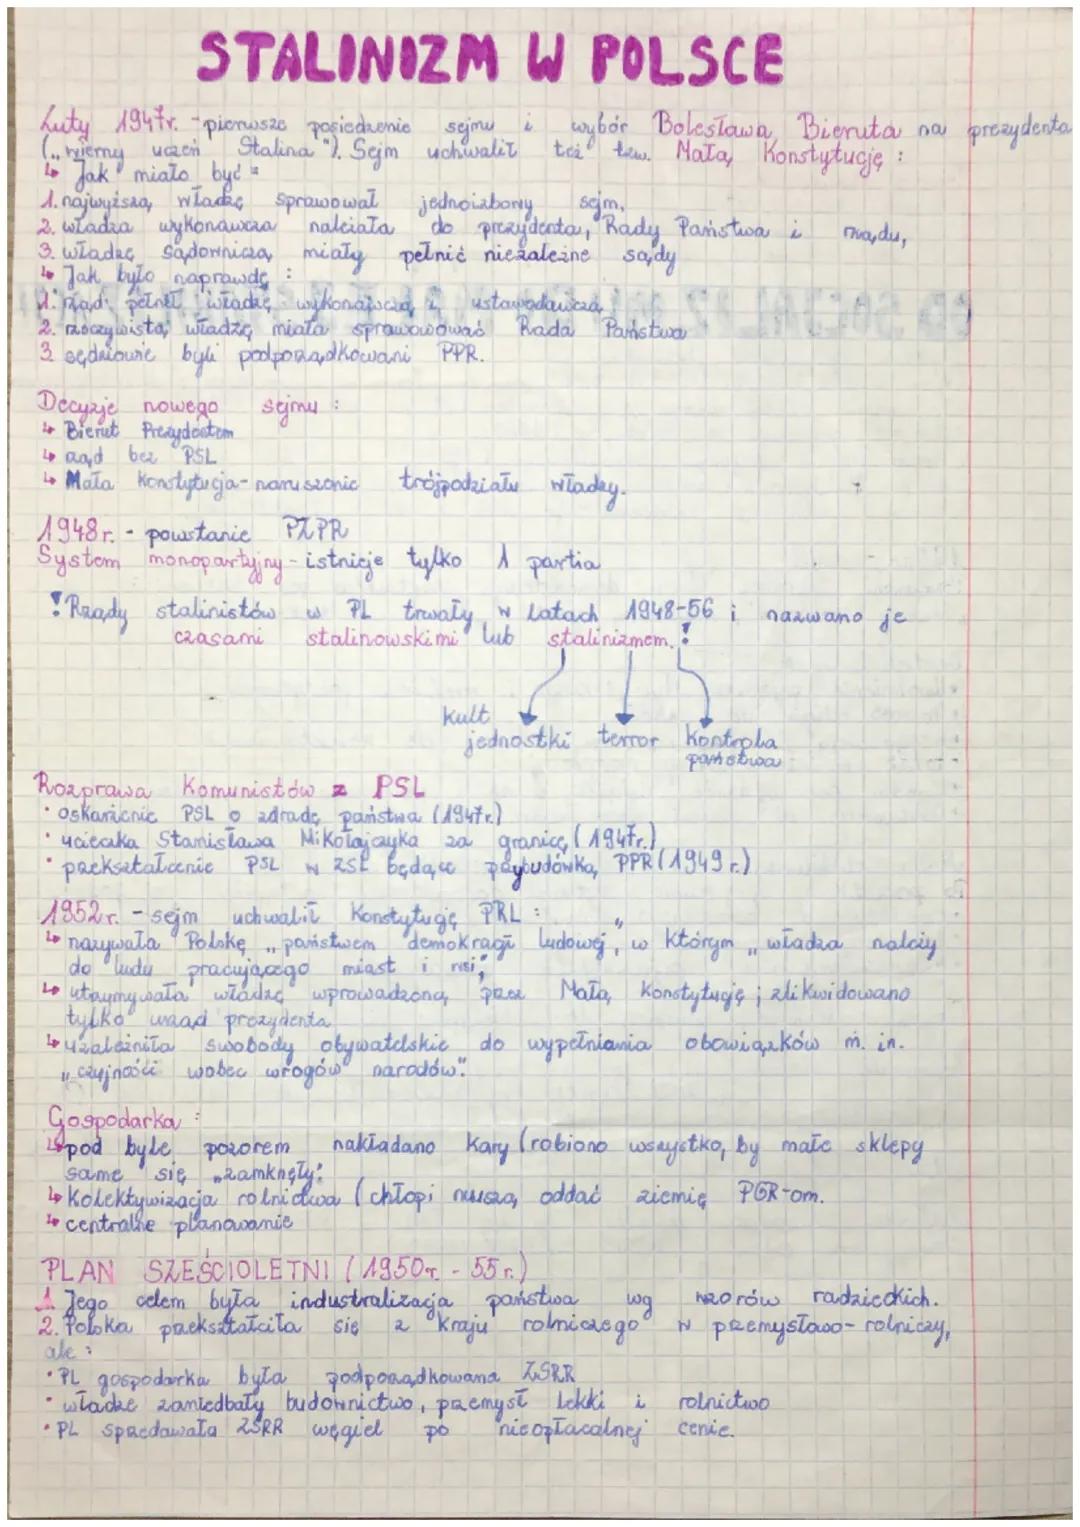 STALINIZM W POLSCE
Luty 1947r. - pierwsze posiedzenie sejmu i wybór Bolesława Bieruta na prezydenta
(„wierny uczeń Stalina"). Sejm uchwalił też tzw. Małą Konstytucję :
↳ Jak miało być :
1. najwyższą władzę sprawował jednoizbowy sejm,
2. władza wykonawcza należała do prezydenta, Rady Państwa i rządu,
3. władzę sądowniczą miały pełnić niezależne sądy
↳ Jak było naprawdę :
1. rząd pełnił władzę wykonawczą i ustawodawczą
2. rzeczywistą władzę miała sprawowować Rada Państwa
3. sędziowie byli podporządkowani PPR.
Decyzje nowego sejmu :
↳ Bierut Prezydentem
↳ rząd bez PSL
↳ Mała Konstytucja - naruszenie trójpodziału władzy.
1948r. - powstanie PZPR
System monopartyjny - istnieje tylko 1 partia
! Rządy stalinistów w PL trwały w latach 1948-56 i nazwano je
czasami stalinowskimi lub stalinizmem. !
kult jednostki terror kontrola
państwa
Rozprawa Komunistów z PSL
• oskarżenie PSL o zdradę państwa (1947r.)
• ucieczka Stanisława Mikołajczyka za granicę (1947r.)
• przekształcenie PSL w ZSL będące przybudówką PPR (1949 r.)
1952r. - sejm uchwalił Konstytucję PRL :
↳ nazywała Polskę „państwem demokracji ludowej", w którym „władza należy
do ludu pracującego miast i wsi"
↳ utrzymywała władzę wprowadzoną przez Małą Konstytucję ; zlikwidowano
tylko urząd prezydenta
↳ uzależniła swobody obywatelskie do wypełniania obowiązków m. in.
„czujności wobec wrogów narodów".
Gospodarka :
↳ pod byle pozorem nakładano kary (robiono wszystko, by małe sklepy
same się „zamknęły"
↳ Kolektywizacja rolnictwa (chłopi muszą oddać ziemię PGR-om.
↳ centralne planowanie
PLAN SZEŚCIOLETNI (1950r. - 55 r.)
1. Jego celem była industralizacja państwa wg wzorów radzieckich.
2. Polska przekształciła się z kraju rolniczego w przemysłowo - rolniczy,
ale :
• PL gospodarka była podporządkowana ZSRR
• władze zaniedbały budownictwo, przemysł lekki i rolnictwo
• PL sprzedawała ZSRR węgiel po nieopłacalnej cenie.